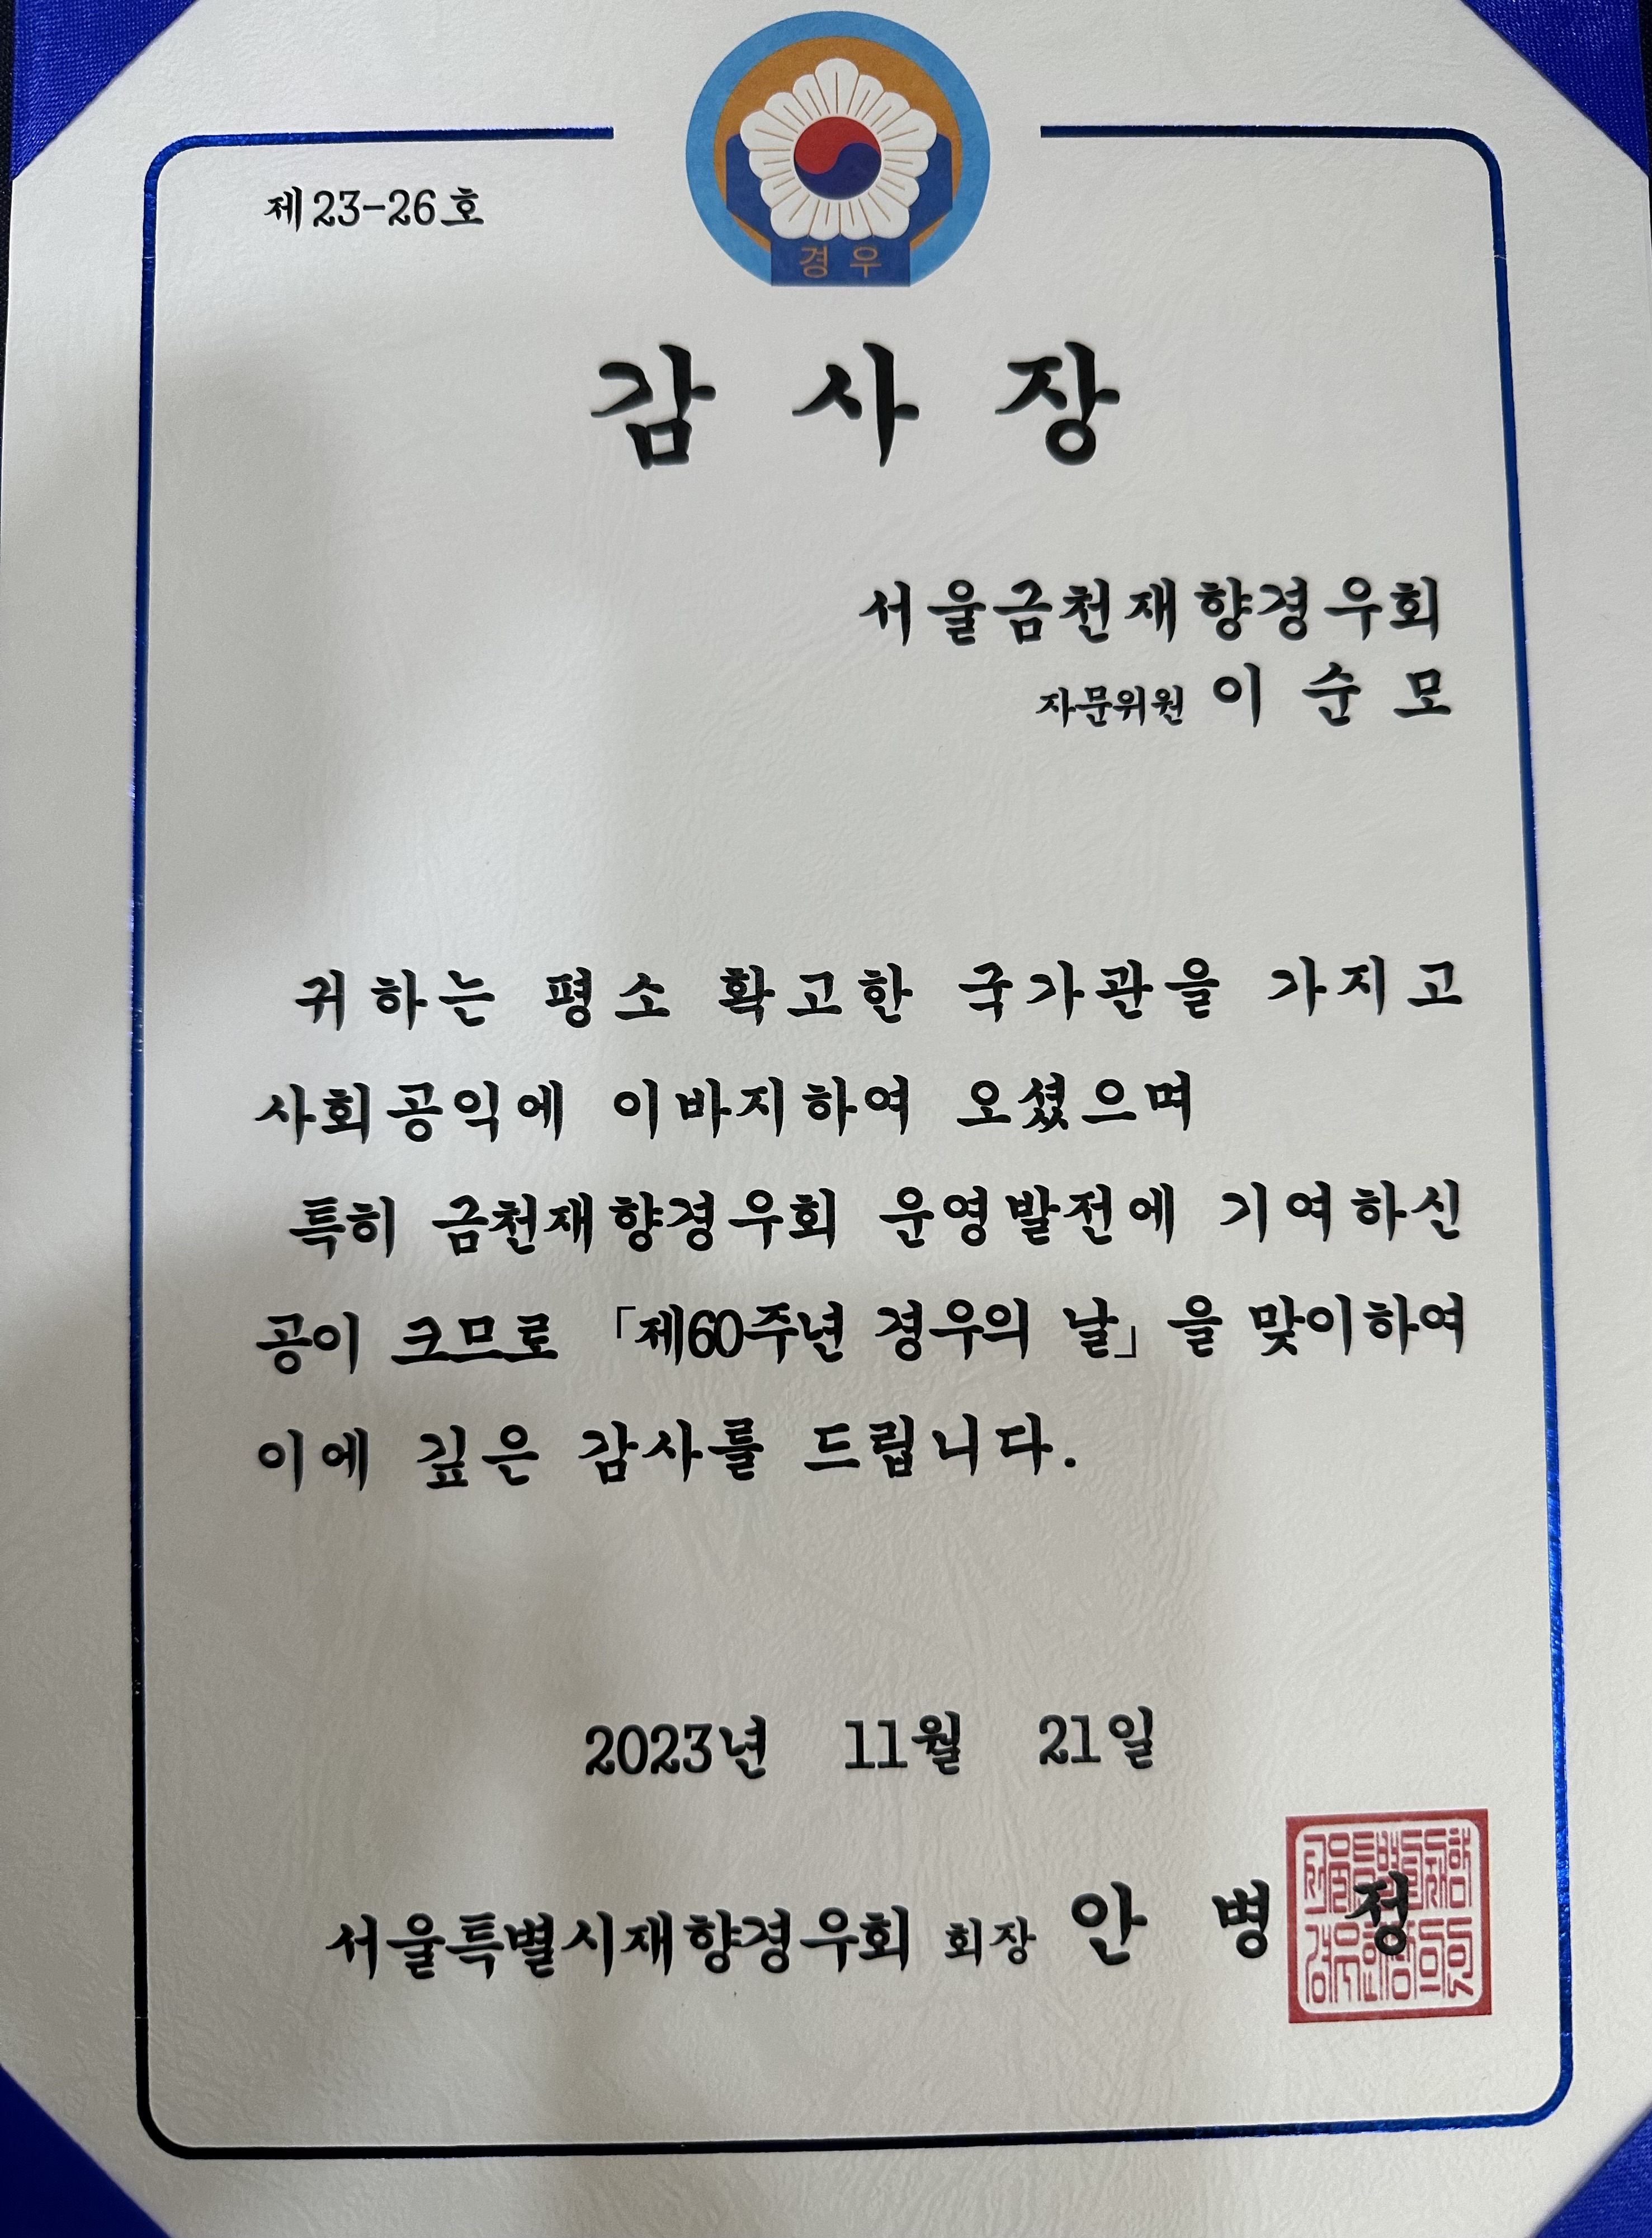 경우
제23-26호
감사장
서울금천재향경우회
자문위원 이순모
귀하는 평소 확고한 국가관을 가지고
사회공익에 이바지하여 오셨으며
특히 금천재향경우회 운영발전에 기여하신
공이 크므로 「제60주년 경우의 날」을 맞이하여
이에 깊은 감사를 드립니다.
2023년 11월 21일
서울특별시재향경우회 회장 안병정